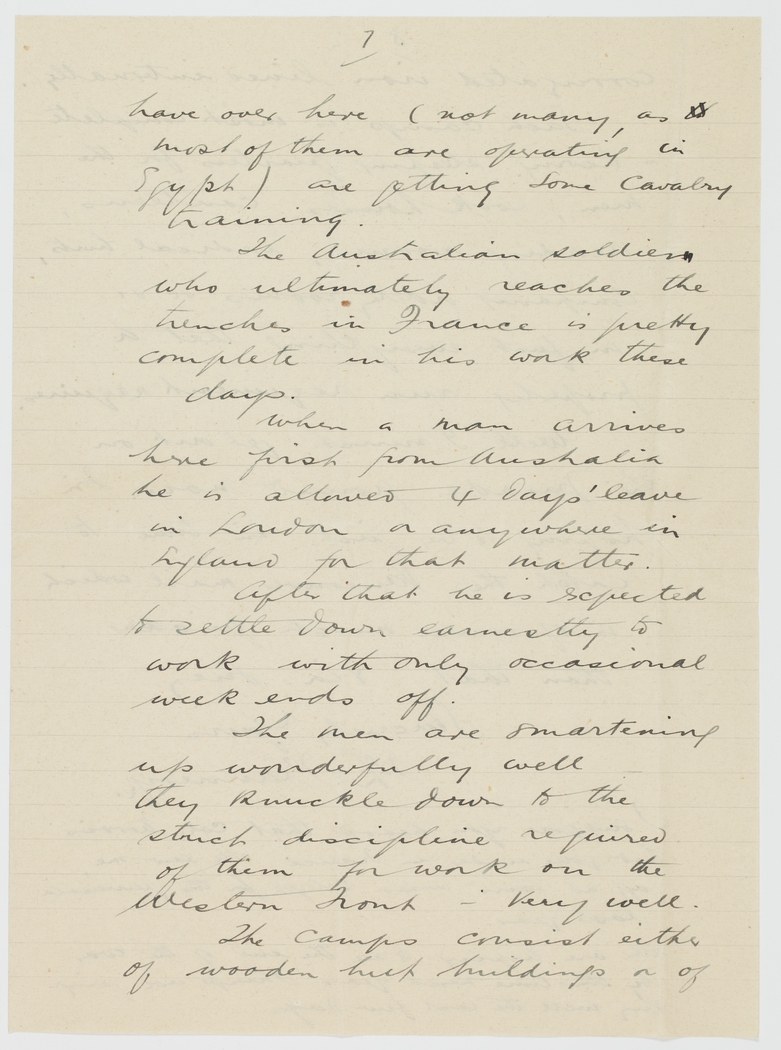 7
have over here (not many, as
most of them are operating in
Egypt) are getting some Cavalry
training.
The Australian soldier
who ultimately reaches the
trenches in France is pretty
complete in his work these
days.
When a man arrives
here first from Australia
he is allowed 4 days' leave
in London or anywhere in
England for that matter.
After that he is expected
to settle down earnestly to
work with only occasional
week ends off.
The men are smartening
up wonderfully well
they knuckle down to the
strict discipline required
of them for work on the
Western Front - very well.
The Camps consist either
of wooden hut buildings or of